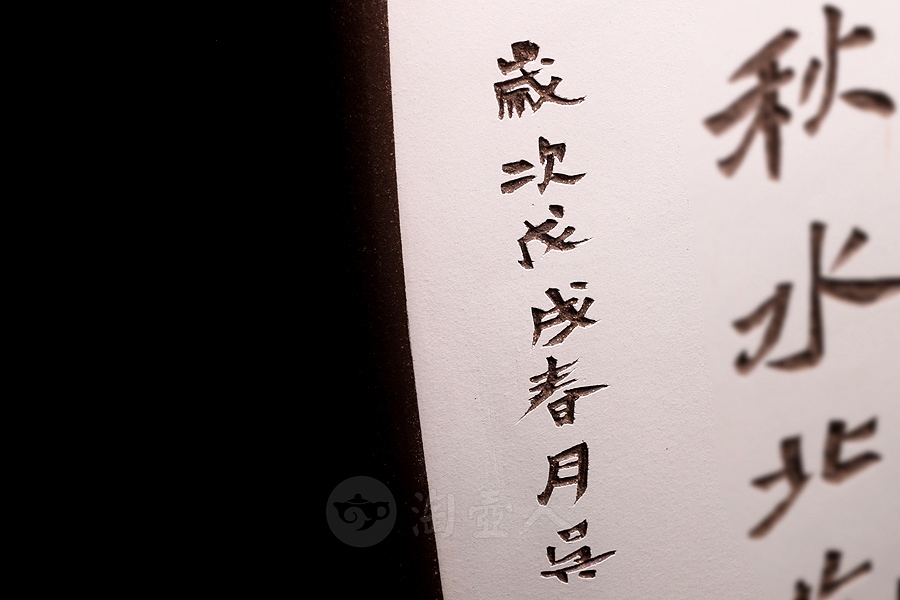 秋水北
歲次戊戌春月吳
淘壺人